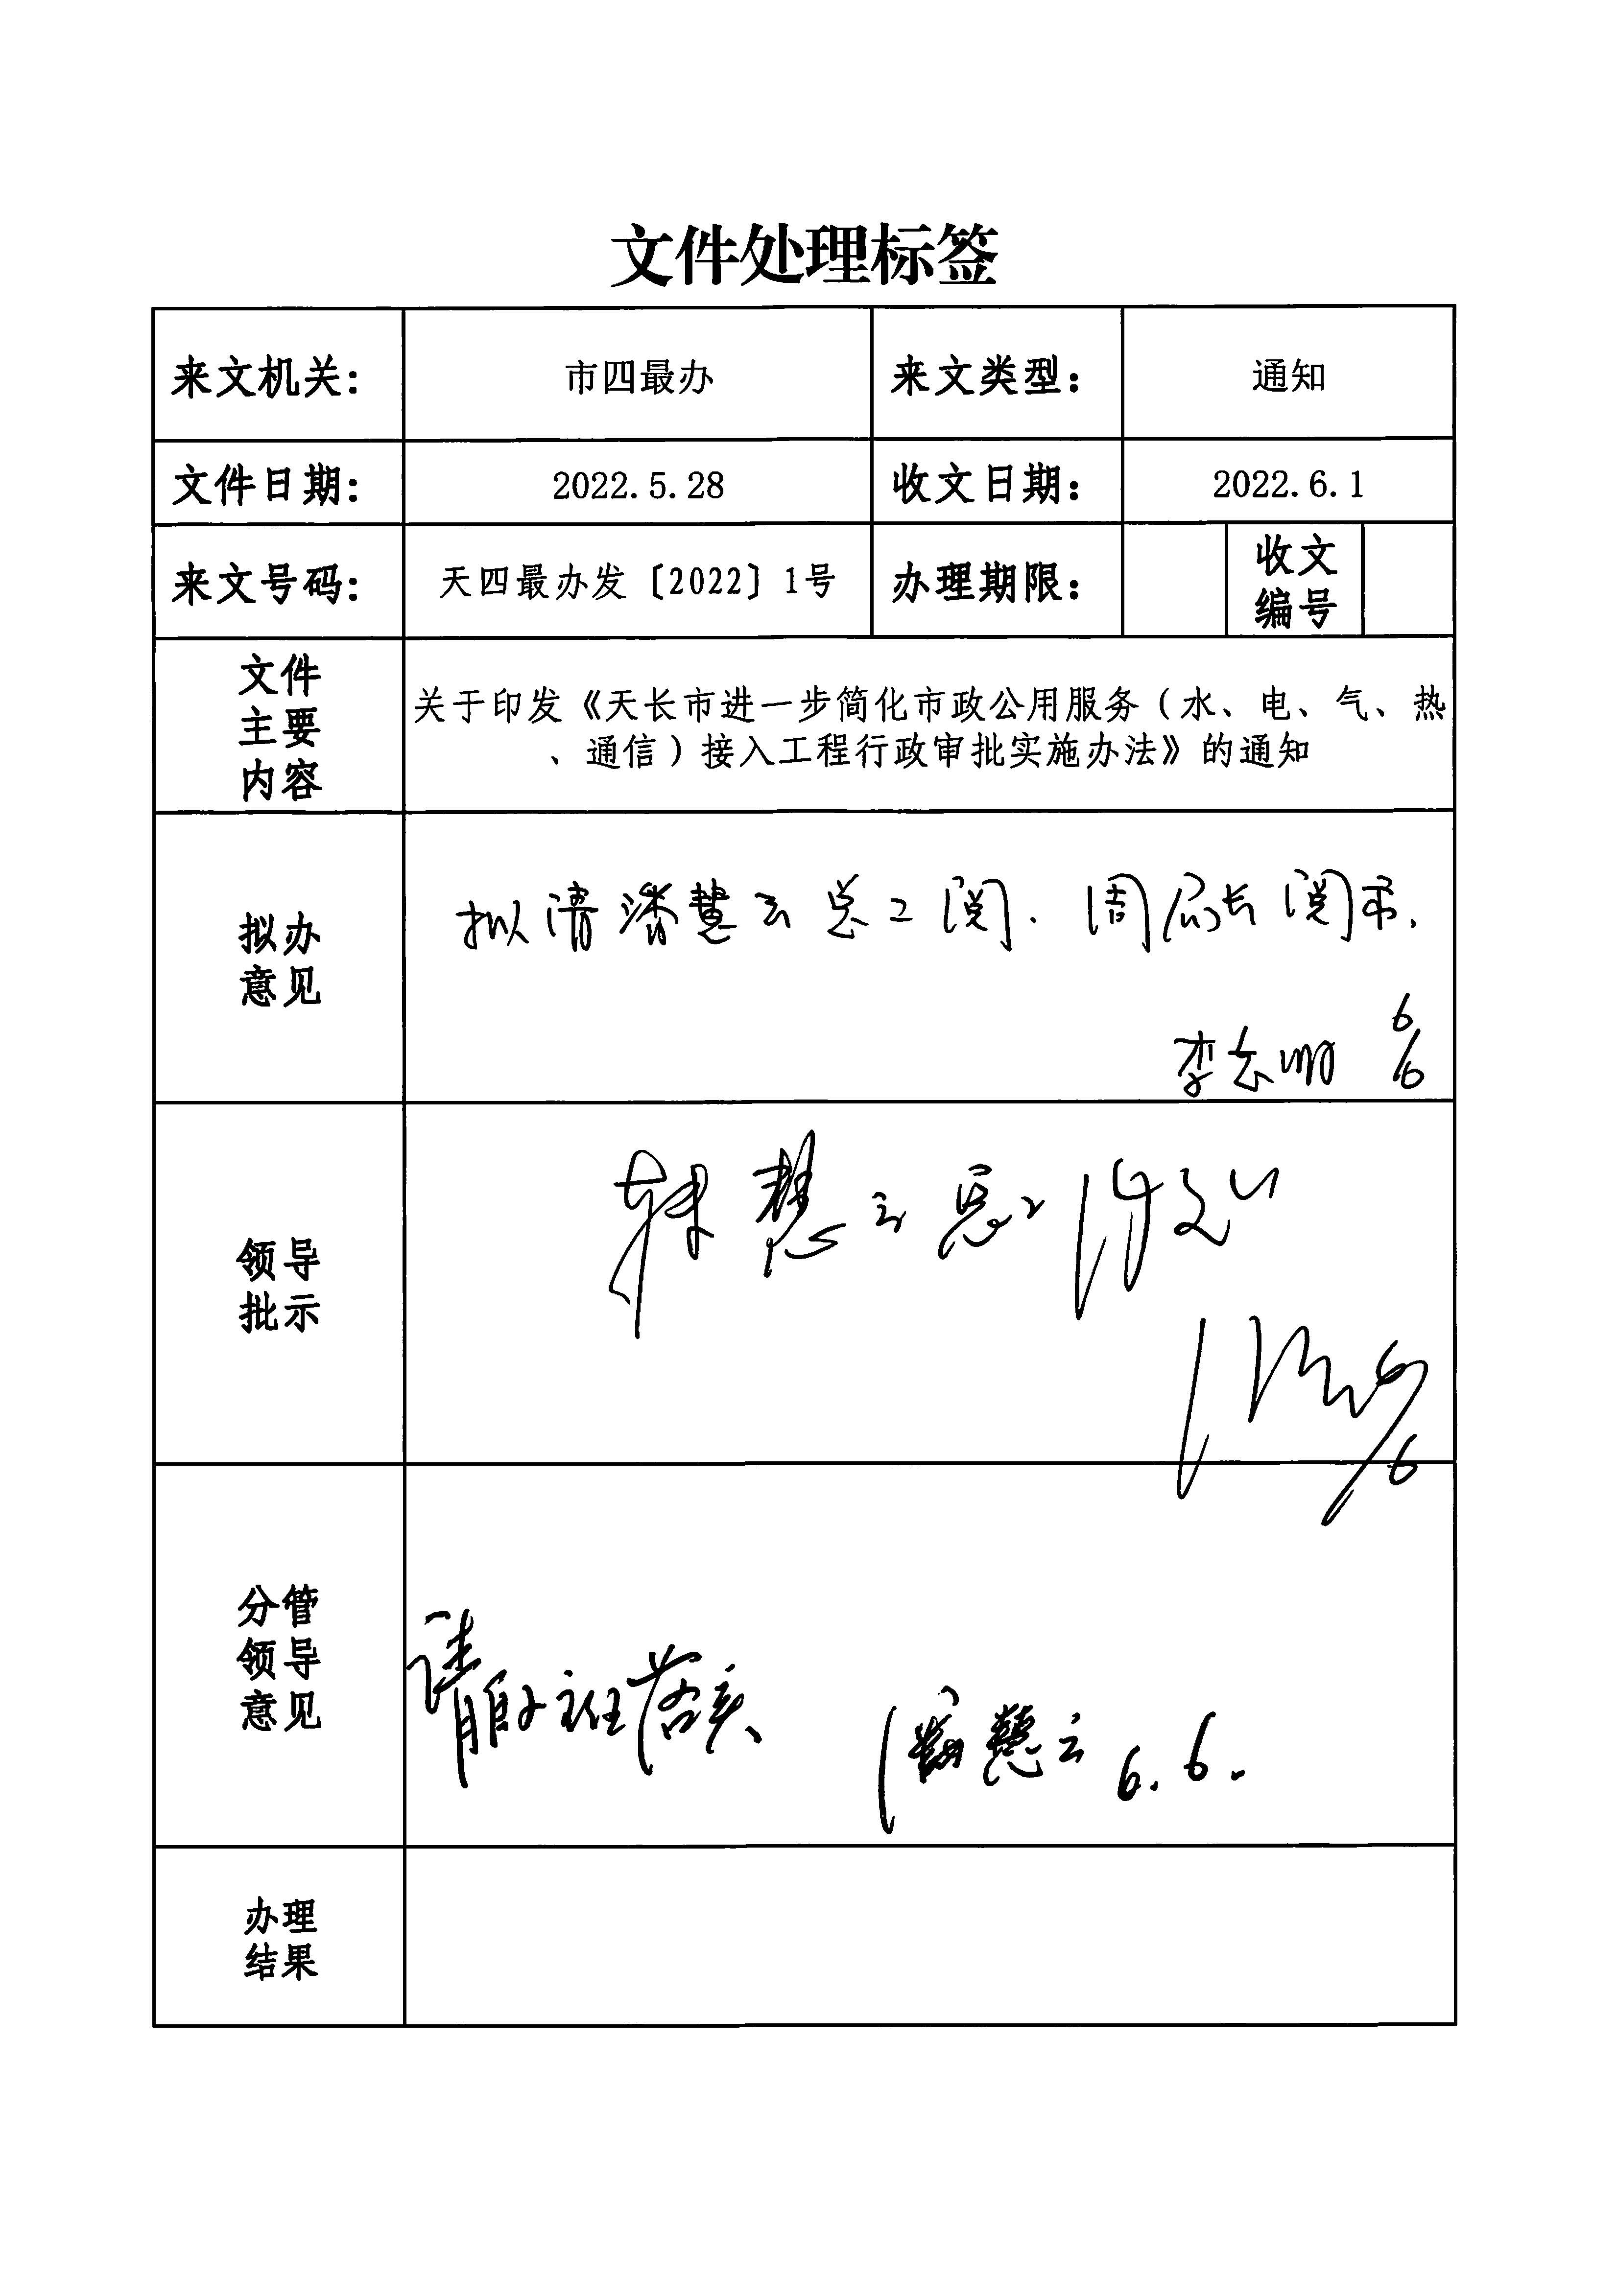 文件处理标签
来文机关: 市四最办 来文类型: 通知
文件日期: 2022.5.28 收文日期: 2022.6.1
来文号码: 天四最办发〔2022〕1号 办理期限: 收文编号
文件主要内容
关于印发《天长市进一步简化市政公用服务（水、电、气、热
、通信）接入工程行政审批实施办法》的通知
拟办意见
拟请潘慧云总工阅、周局长阅示.
李志 6/6
领导批示
慧云总工
6/6
分管领导意见
请 落实
潘慧云 6.6.
办理结果